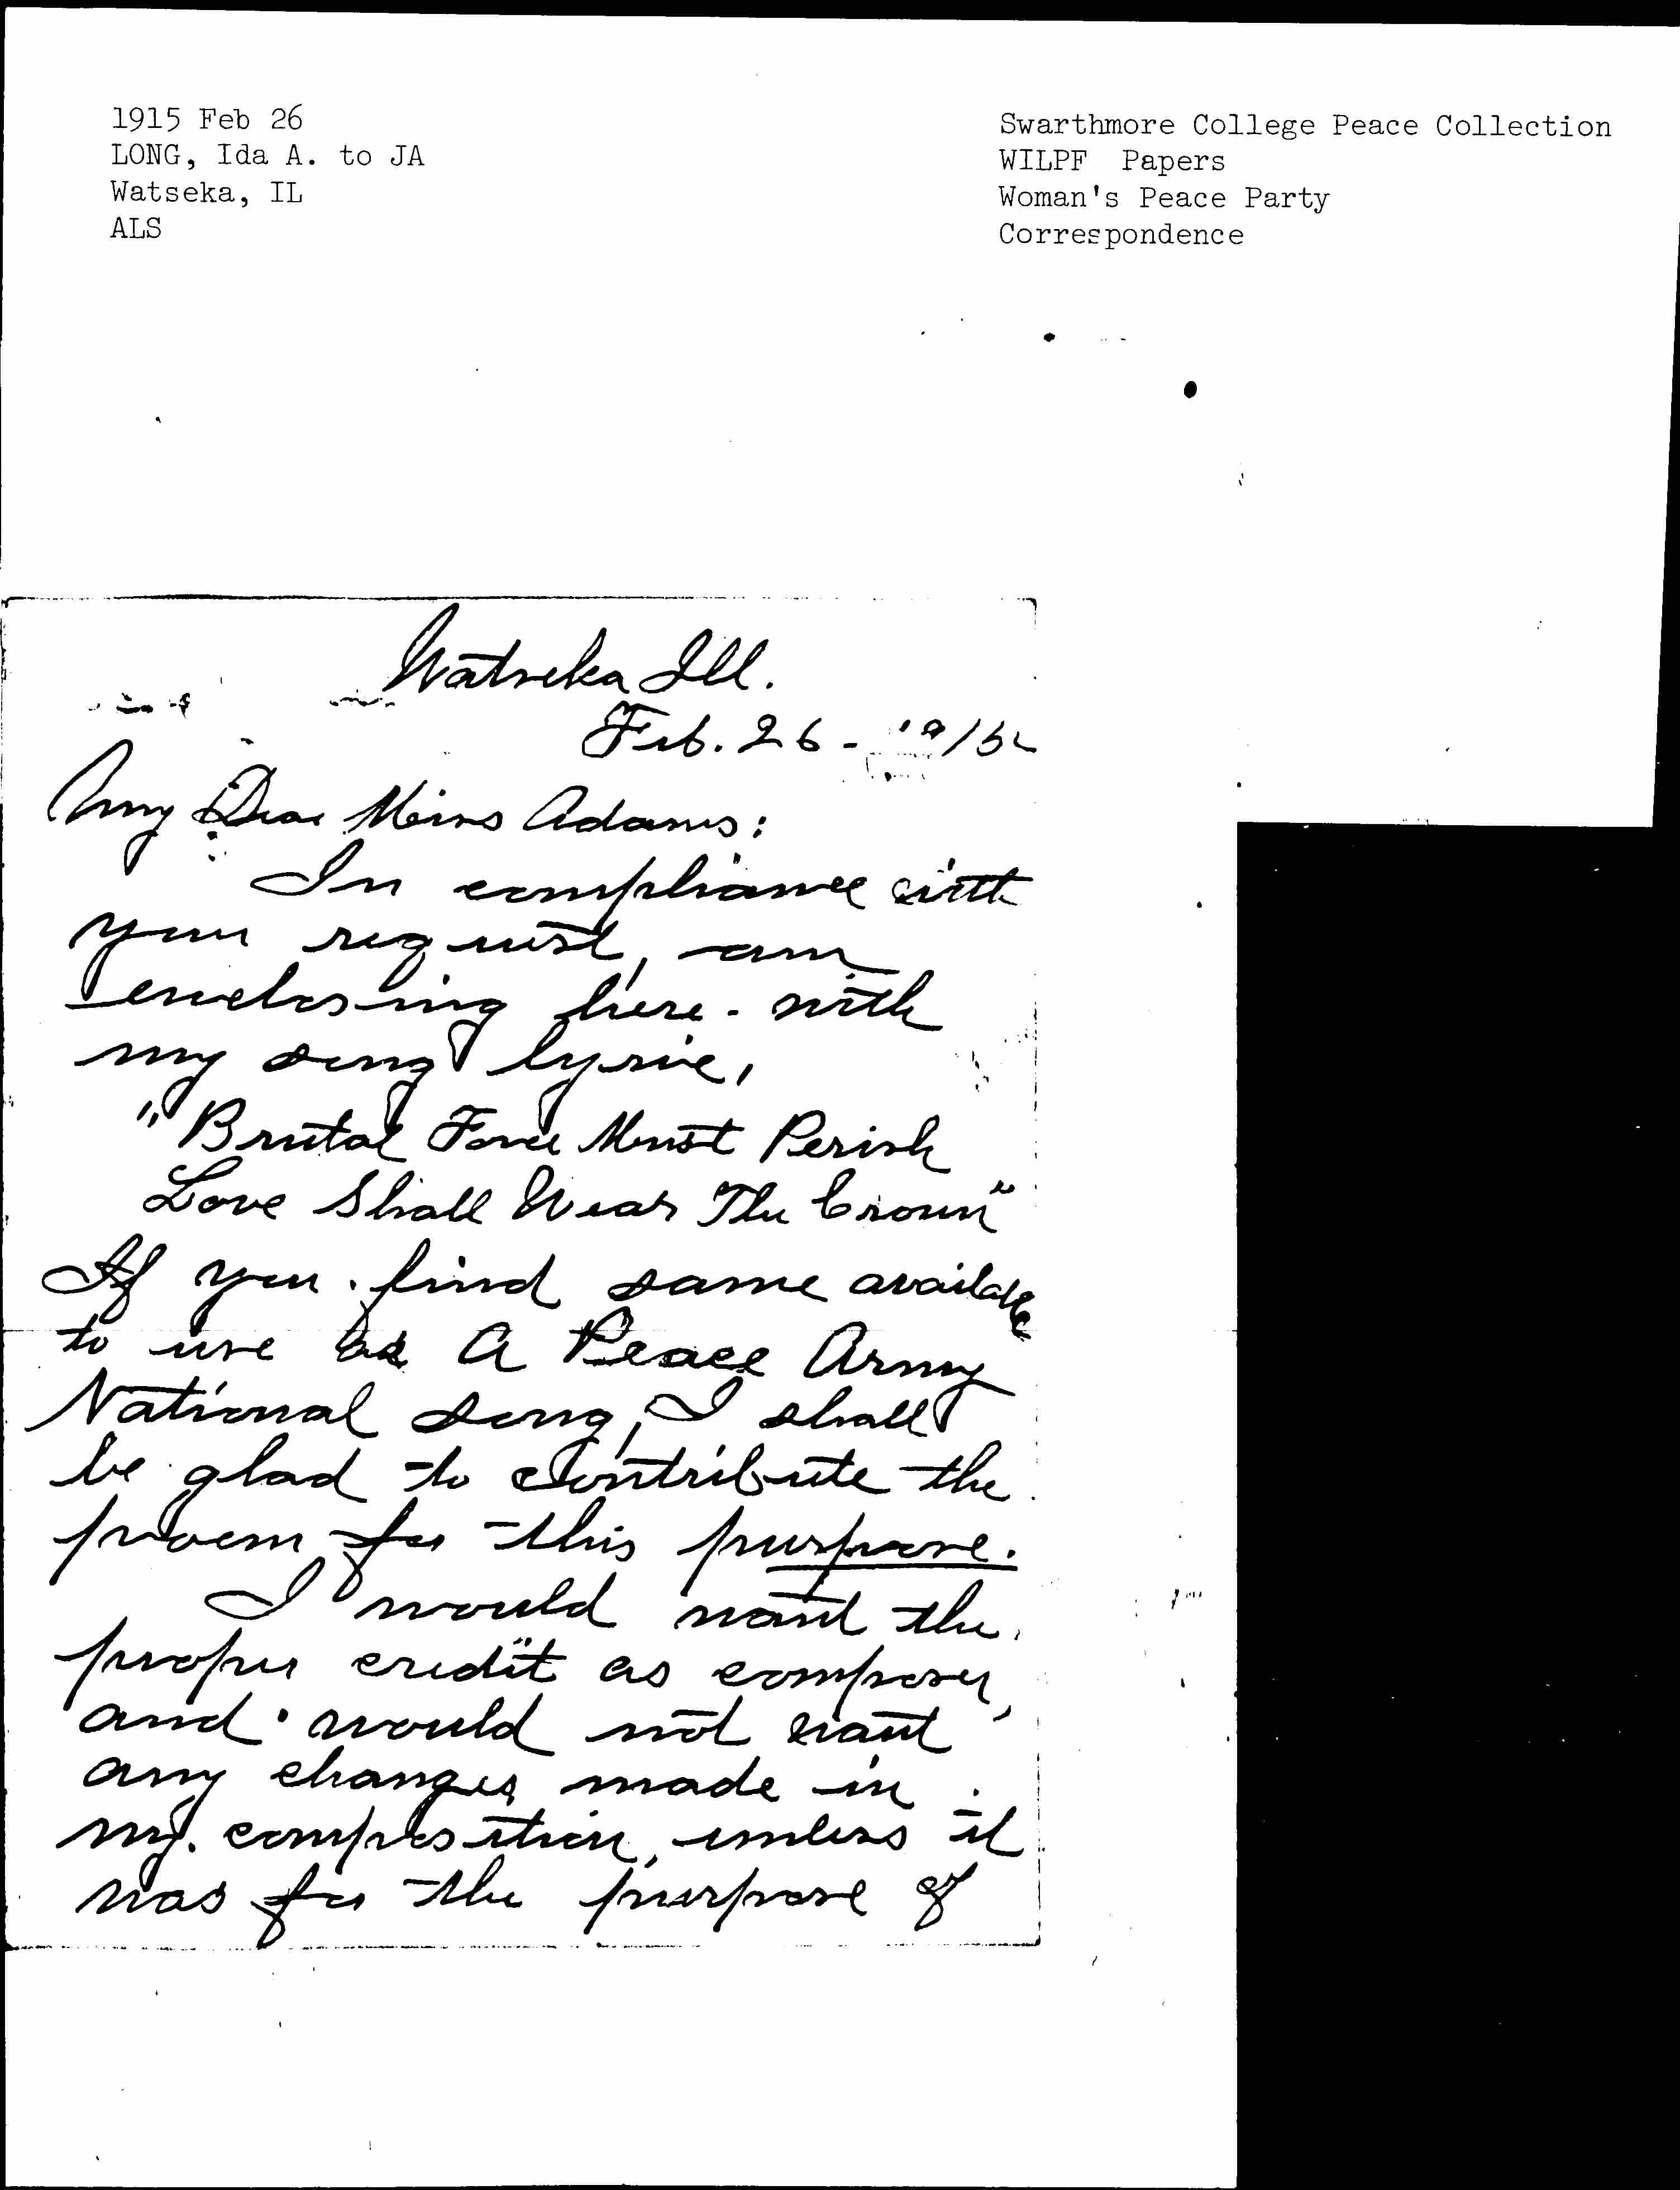 1915 Feb 26
LONG, Ida A. to JA
Watseka, IL
ALS
Swarthmore College Peace Collection
WILPF Papers
Woman's Peace Party
Correspondence
Watseka Ill.
Feb. 26 - 1915
My Dear Miss Adams:
In compliance with
your request, am
enclosing here-with
my song lyric,
"Brutal Force Must Perish
Love Shall Wear The Crown"
If you find same available
to use as A Peace Army
National song, I shall
be glad to contribute the
poem for this purpose.
I would want the
proper credit as composer,
and would not want
any changes made in
my composition, unless it
was for the purpose of